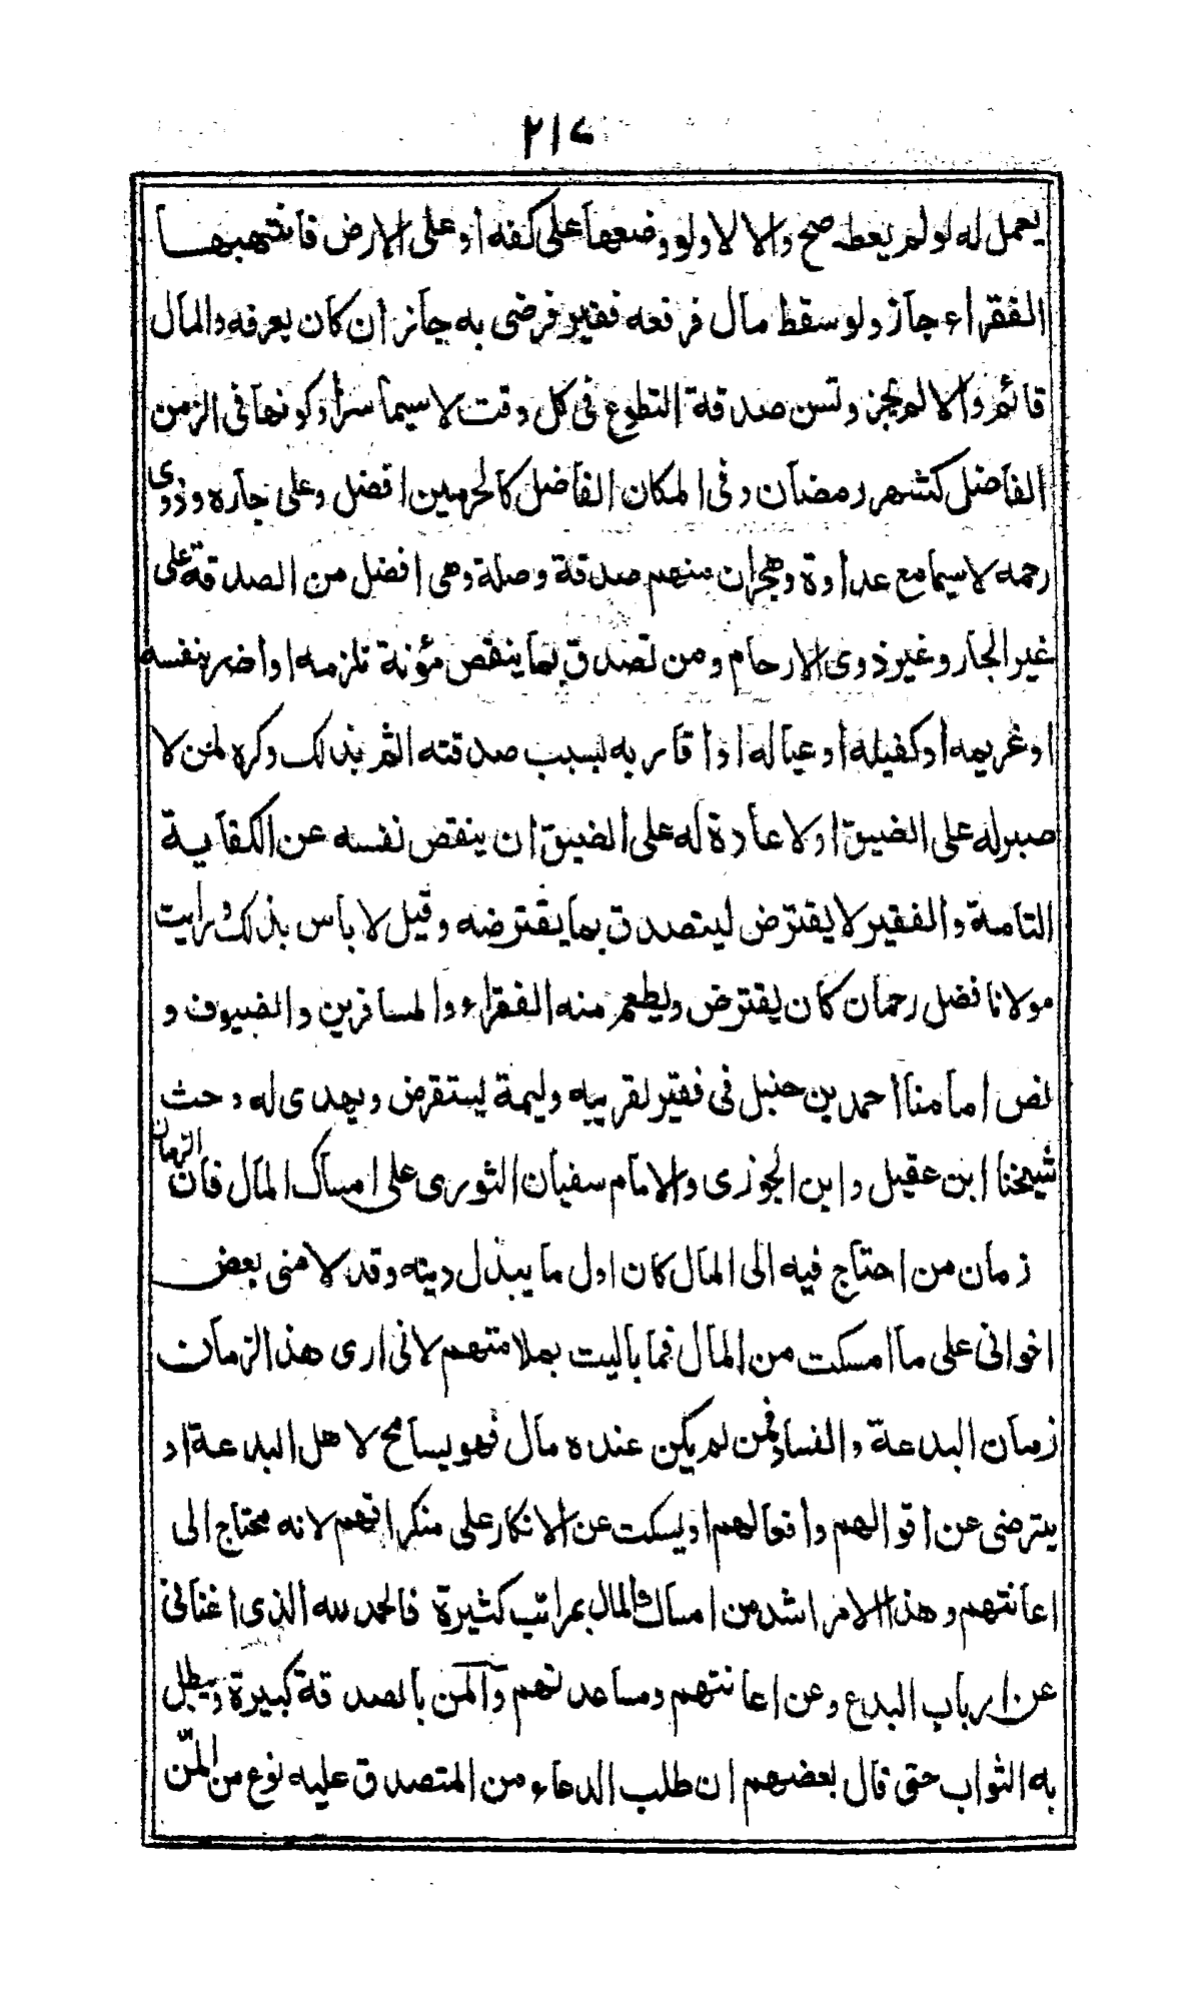 ٢١٧
يعمل له لو لم يعطه صح والا لا ولو وضعها على كفه او على الارض فانتهبها
الفقراء جاز ولو سقط مال فرفعه فقير فرضى به جاز ان كان يعرفه والمال
قائم والا لم يجز وتسن صدقة التطوع فى كل وقت لا سيما سرا وكونها فى الزمن
الفاضل كشهر رمضان وفى المكان الفاضل كالحرمين افضل وعلى جاره وذوى
رحمه لا سيما مع عداوة وهجران منهم صدقة وصلة وهى افضل من الصدقة على
غير الجار وغير ذوى الارحام ومن تصدق بما ينقص مؤنة تلزمه او اضر بنفسه
او غريمه او كفيله او عياله او اقاربه بسبب صدقته اثم بذلك وكره لمن لا
صبر له على الضيق او لا عادة له على الضيق ان ينقص نفسه عن الكفاية
التامة والفقير لا يقترض ليتصدق بما يقترضه وقيل لا باس بذلك ورايت
مولانا فضل رحمان كان يقترض ويطعم منه الفقراء والمسافرين والضيوف و
نص امامنا احمد بن حنبل فى فقير لقريبه وليمة يستقرض ويهدى له وحث
شيخنا ابن عقيل وابن الجوزى والامام سفيان الثورى على امساك المال فان الزمان
زمان من احتاج فيه الى المال كان اول ما يبذل دينه وقد لامنى بعض
اخوانى على ما امسكت من المال فما باليت بملامتهم لانى ارى هذا الزمان
زمان البدعة والفساد فمن لم يكن عنده مال فهو يسامح لاهل البدعة او
يترضى عن اقوالهم وافعالهم او يسكت عن الانكار على منكراتهم لانه محتاج الى
اعانتهم وهذا الامر اشد من امساك المال بمراتب كثيرة فالحمد لله الذى اغنانى
عن ارباب البدع وعن اعانتهم ومساعدتهم والمن بالصدقة كبيرة ويبطل
به الثواب حتى قال بعضهم ان طلب الدعاء من المتصدق عليه نوع من المنّ